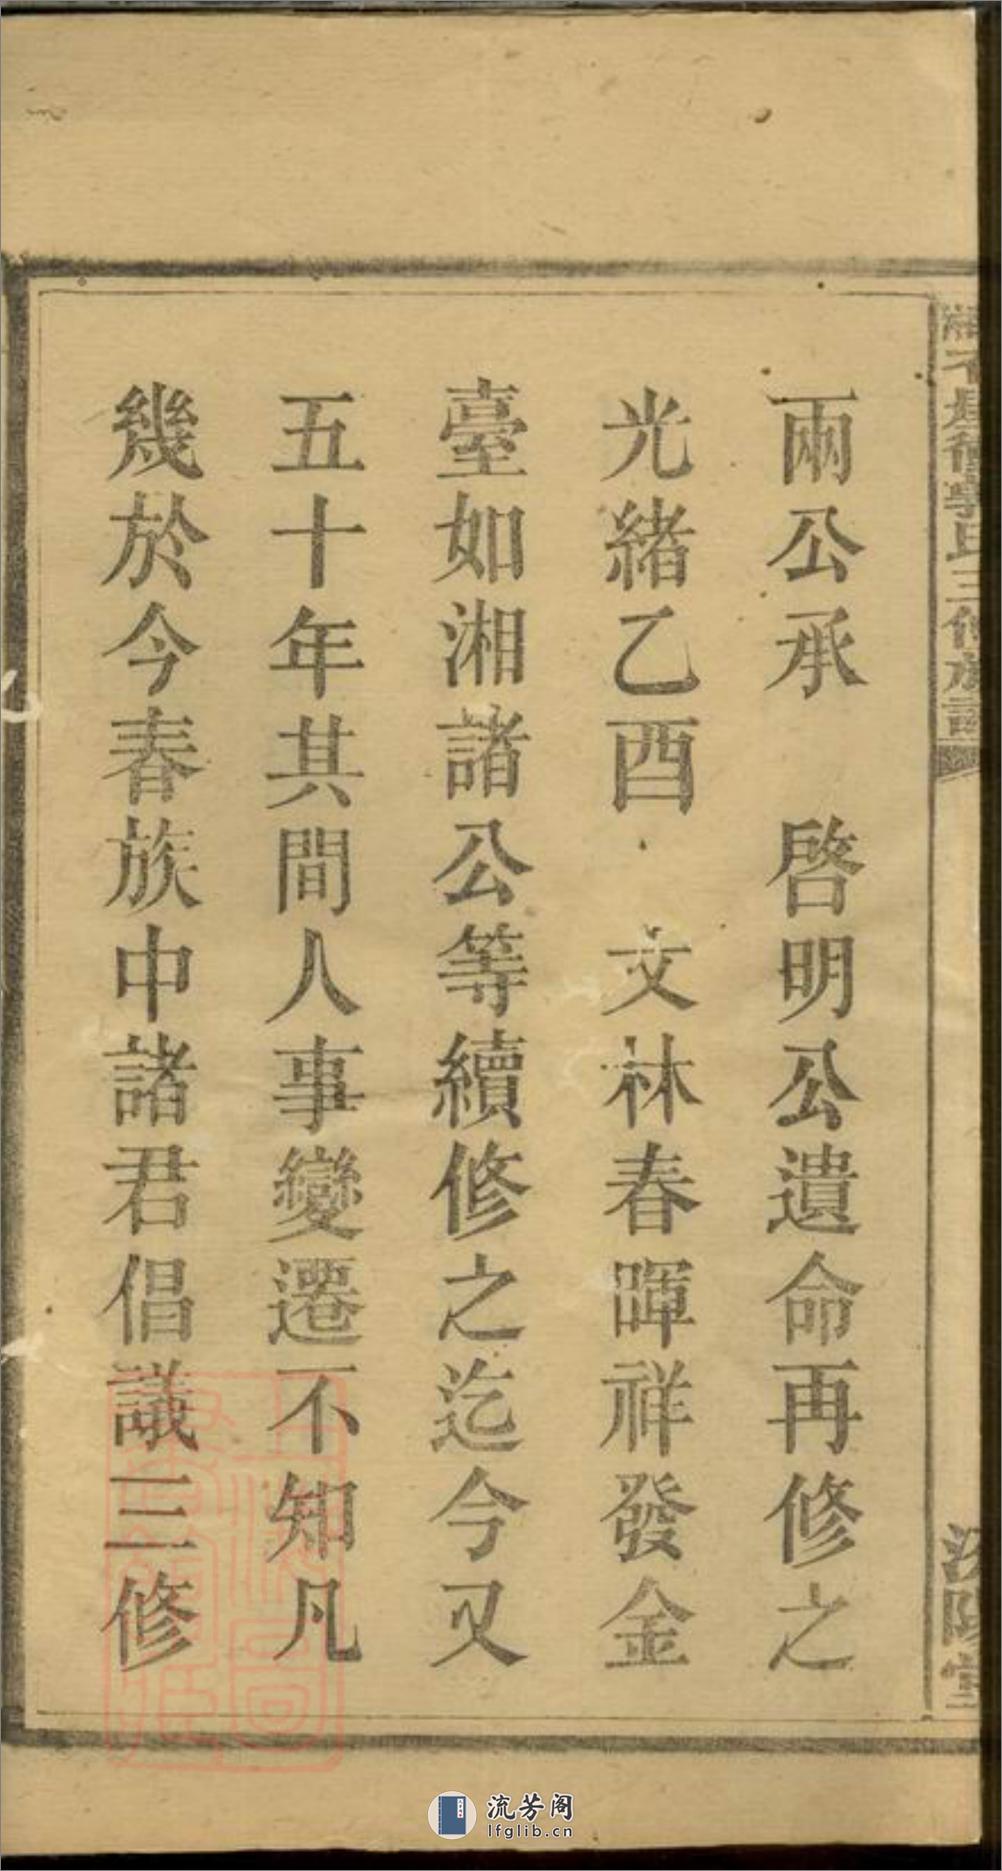 兩公承　啓明公遺命再修之
光緒乙酉　文林春暉祥發金
臺如湘諸公等續修之迄今又
五十年其間人事變遷不知凡
幾於今春族中諸君倡議三修
氏三修族譜
堂
流芳阁
lfglib.cn